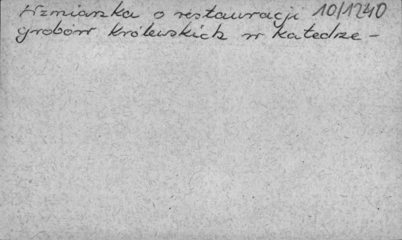 Wzmianka o restauracji 10/1240
grobów królewskich w katedrze -